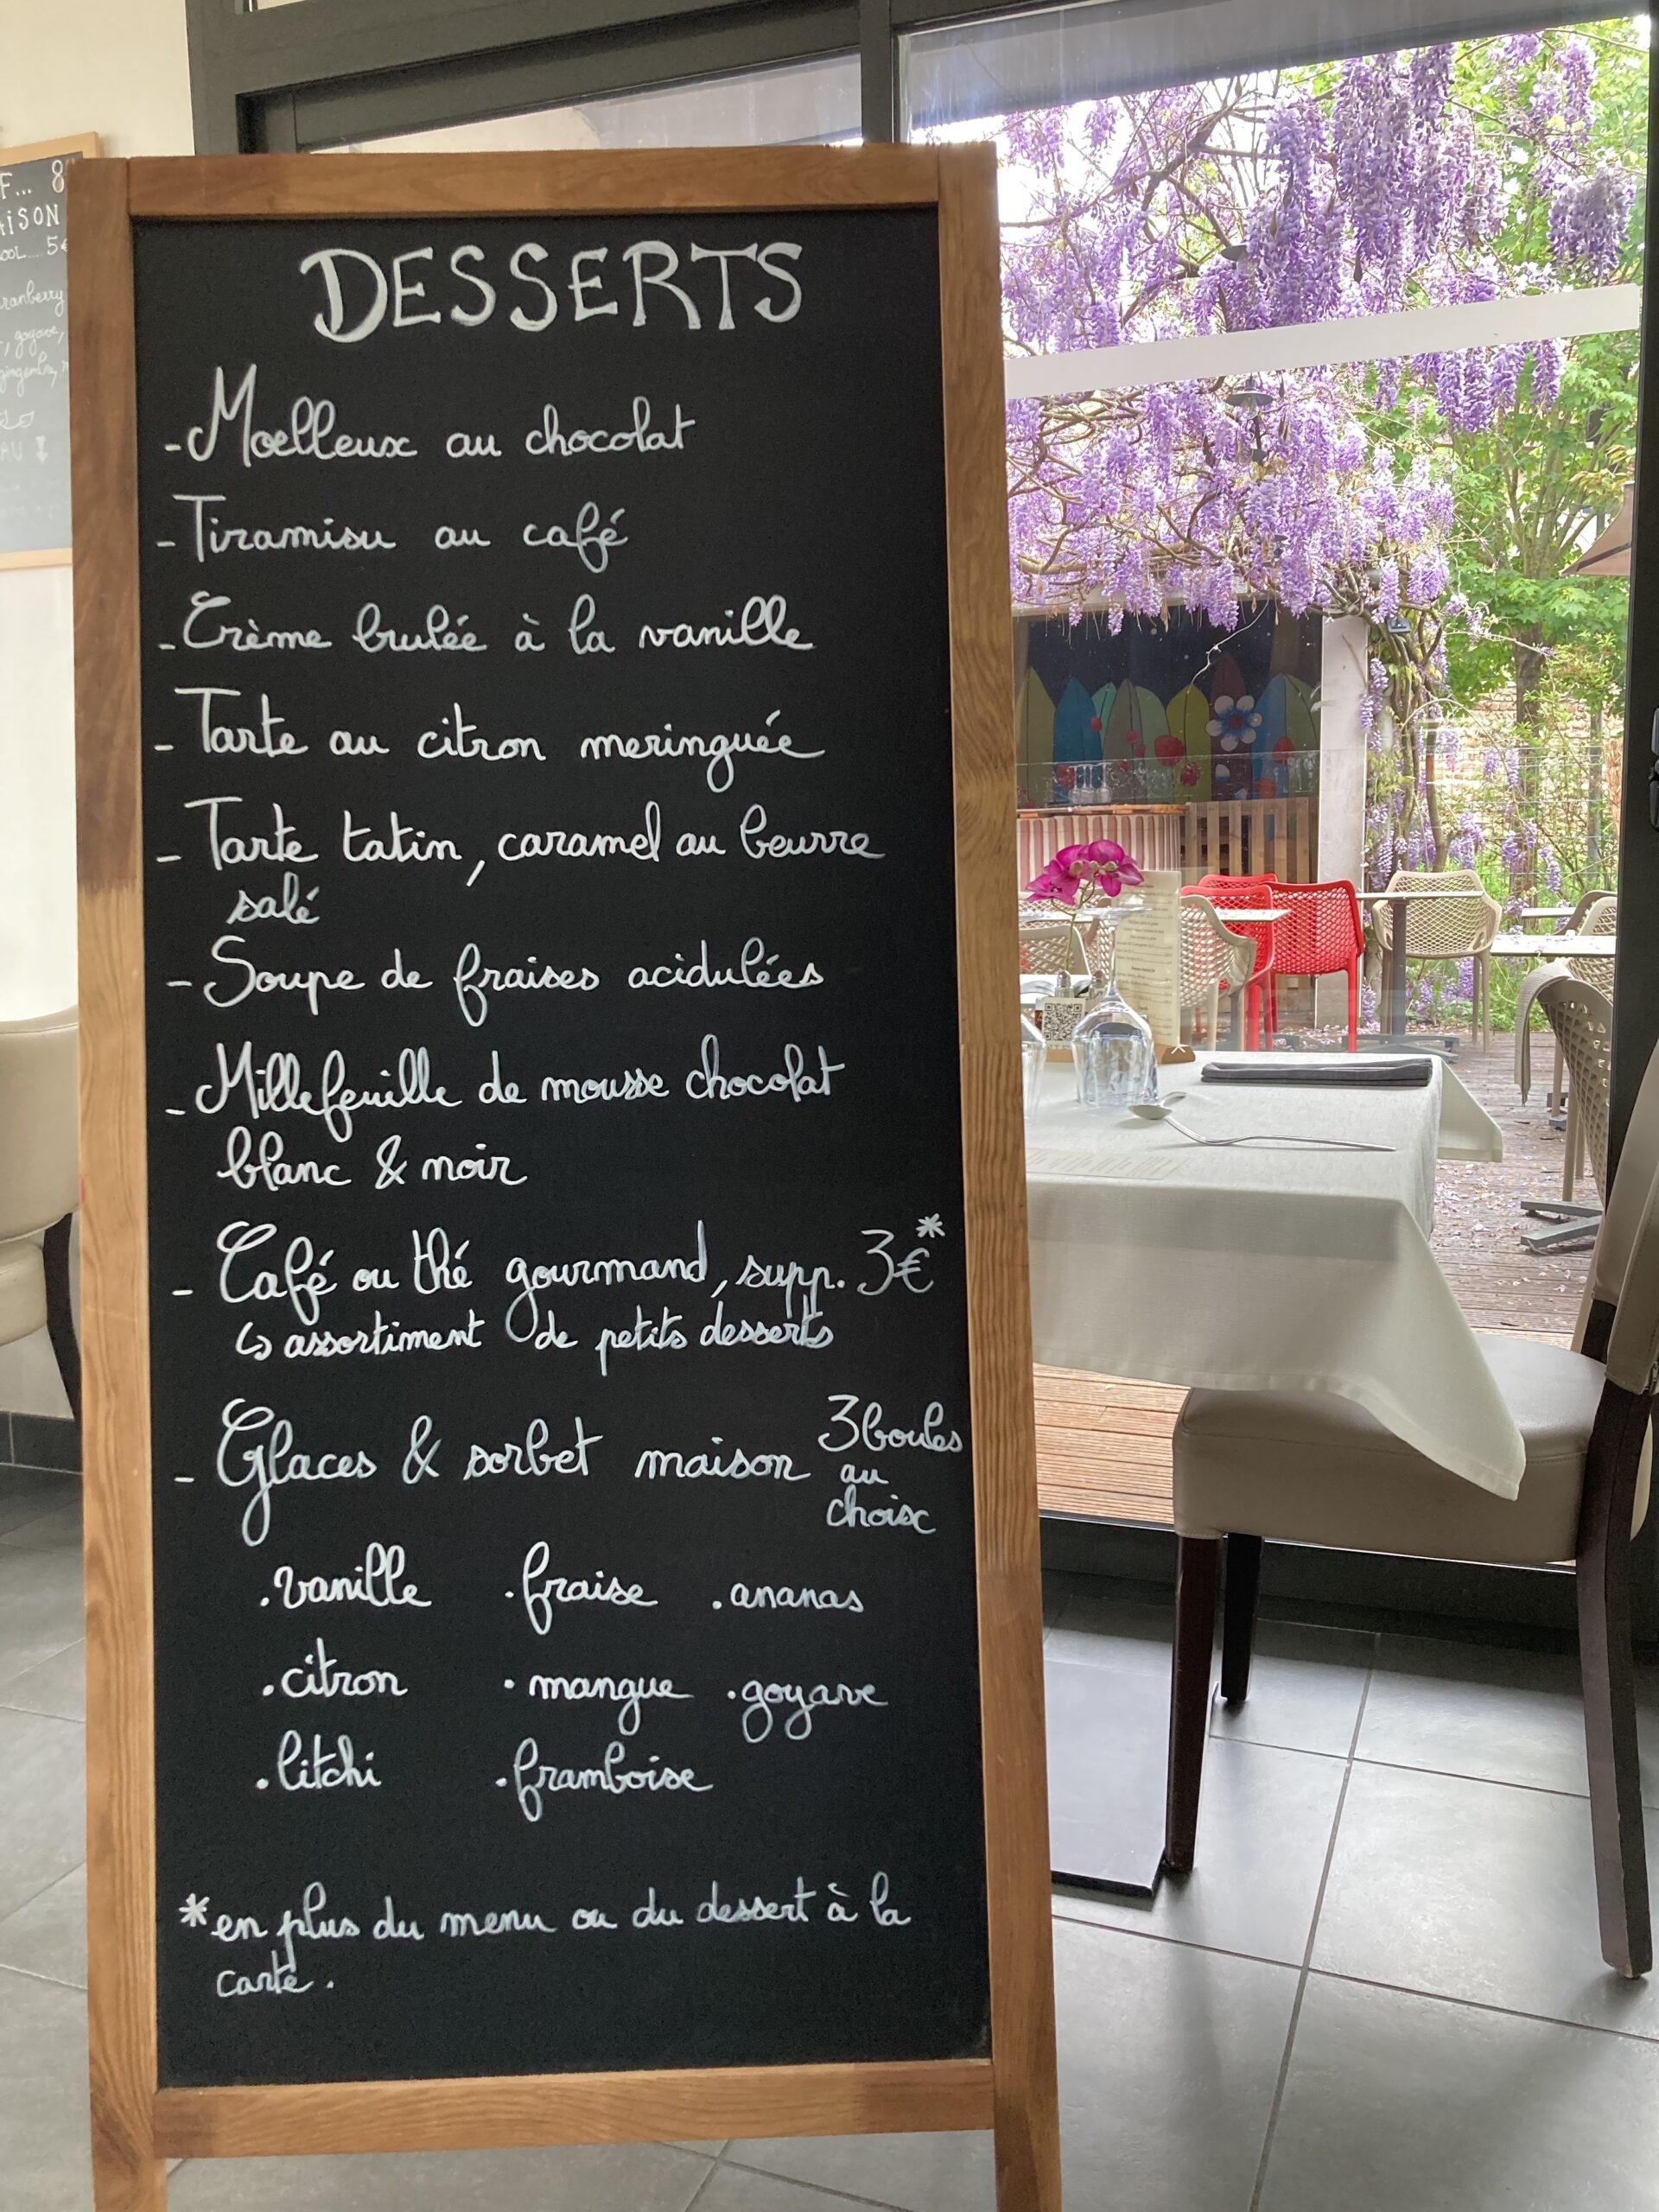 F... 8
AISON
OOL... 5€
ranberry
, goyave,
gingembre,
DESSERTS
- Moelleux au chocolat
- Tiramisu au café
- Crème brulée à la vanille
- Tarte au citron meringuée
- Tarte tatin, caramel au beurre
salé
- Soupe de fraises acidulées
- Millefeuille de mousse chocolat
blanc & noir
- Café ou thé gourmand, supp. 3€*
↳ assortiment de petits desserts
- Glaces & sorbet maison 3 boules
au
choix
. vanille . fraise . ananas
. citron . mangue . goyave
. litchi . framboise
* en plus du menu ou du dessert à la
carte.